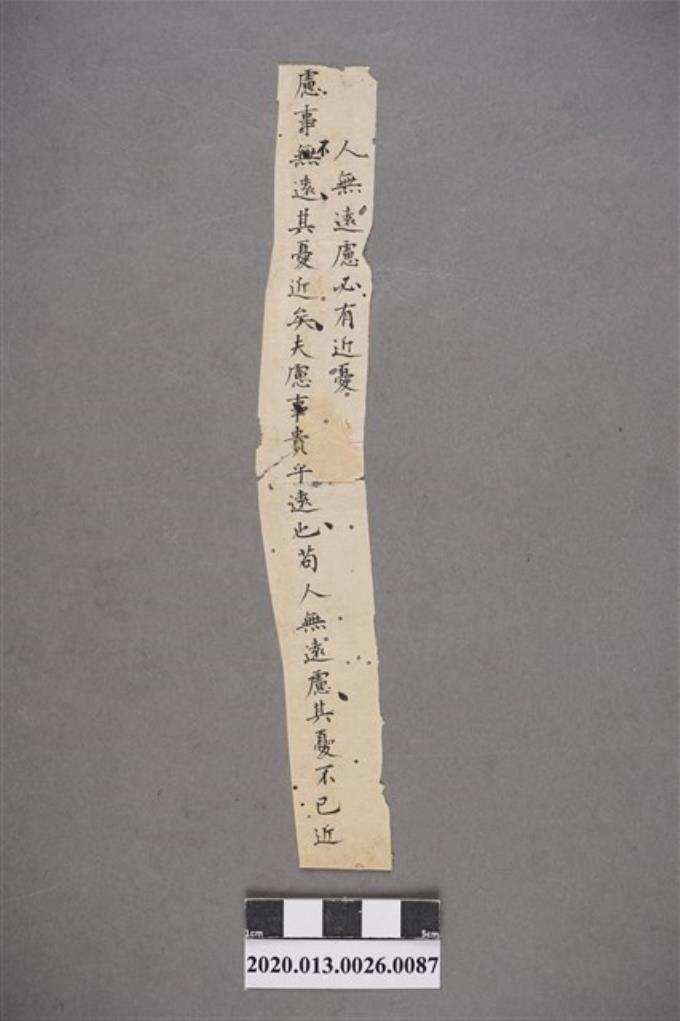 人無遠慮必有近憂
慮事不無遠其憂近矣夫慮事貴乎遠也苟人無遠慮其憂不已近
1cm 5cm
2020.013.0026.0087